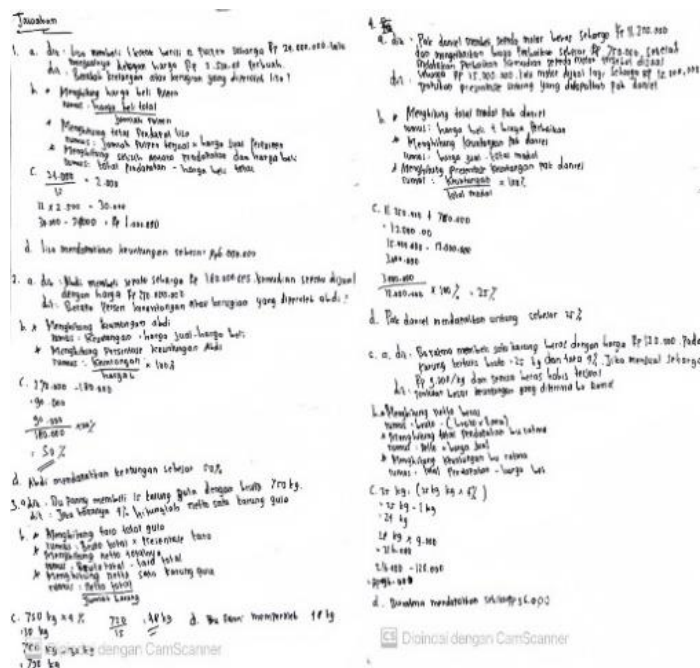 Jawaban
1. a. dik : Lisa membeli 1 kotak berisi 12 pulpen seharga Rp 24.000,00 lalu
menjualnya dengan harga Rp 2.500,00 perbuah.
dit : Berapa keuntungan atau kerugian yang diperoleh lisa ?
b. * Menghitung harga beli pulpen
rumus : harga beli total
jumlah pulpen
* Menghitung total Pendapatan lisa
rumus : Jumlah Pulpen terjual x harga jual Perpulpen
* Menghitung selisih antara Pendapatan dan harga beli
rumus : total Pendapatan - harga beli total
C. 24.000 = 2.000
12
12 x 2.500 = 30.000
d. lisa mendapatkan keuntungan sebesar
2. a. dik : Abdi membeli sepatu seharga Rp 180.000,00. kemudian sepatu dijual
dengan harga Rp 270.000,00
dit : Berapa Persen keuntungan atau kerugian yang diperoleh abdi ?
b. * Menghitung keuntungan abdi
rumus : keuntungan = harga jual - harga beli
* Menghitung Persentase keuntungan Abdi
rumus : keuntungan x 100%
C. 270.000 - 180.000
= 90.000
90.000 x 100%
180.000
= 50%
d. Abdi mendapatkan keuntungan sebesar 50%
3. a. dik : Bu Panny membeli 15 karung gula dengan bruto 750 kg.
dit : Jika taranya 4% hitunglah netto satu karung gula
b. * Menghitung tara total gula
rumus : Bruto total x Presentase tara
* Menghitung netto totalnya
rumus : Bruto total - tara total
* Menghitung netto satu karung gula
rumus : Netto total
Jumlah karung
C. 750 kg x 4%
= 30 kg
750 kg - 30 kg
= 720 kg
720 = 48 kg
15
d. Bu Panny memperoleh 48 kg
4.
a. dik : Pak daniel membeli sepeda motor bekas seharga Rp 11.250.000
dan mengeluarkan biaya Perbaikan sebesar Rp 750.000, setelah
Perbaikan kemudian sepeda motor tersebut dijual
seharga Rp 15.000.000
dit : presentase untung yang didapatkan Pak daniel
b. * Menghitung total modal Pak daniel
rumus : harga beli + biaya Perbaikan
* Menghitung keuntungan Pak daniel
rumus : harga jual - total modal
* Menghitung Presentase keuntungan Pak daniel
rumus : keuntungan x 100%
total modal
C. 11.250.000 + 750.000
15.000.000 - 12.000.000
3.000.000
3.000.000 x 100% = 25%
12.000.000
d. Pak daniel mendapatkan untung sebesar 25%
a. dik : Bu ratna membeli satu karung beras dengan harga Rp 120.000. Pada
karung tertulis bruto = 25 kg dan tara 4%. Jika menjual seharga
Rp 9.000/kg dan semua beras habis terjual
dit : besar keuntungan yang diterima bu ratna
b. * Menghitung netto beras
rumus : bruto - (bruto x tara)
* Menghitung total Pendapatan bu ratna
rumus : netto x harga jual
* Menghitung keuntungan bu ratna
rumus : total Pendapatan - harga beli
= 25 kg - 1 kg
= 24 kg
24 kg x 9.000
= 216.000
216.000 - 120.000
CS Dipindai dengan CamScanner
CS Dipindai dengan CamScanner